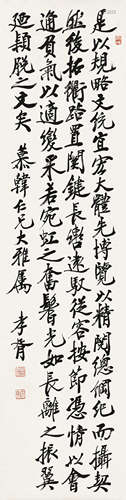 是以規略文統宜宏大體先博覽以精閱總綱紀而攝契
然後拓衢路置關鍵長轡遠馭從容按節憑情以會
通負氣以適變采若宛虹之奮鬐光如長離之振翼
迺穎脫之文矣 慕韓仁兄大雅屬 孝胥